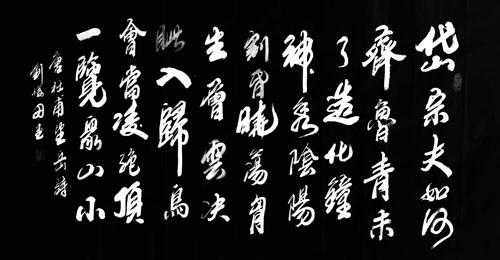 岱宗夫如何
齊魯青未
了造化鐘
神秀陰陽
割昏曉蕩胷
生曾雲决
眦入歸鳥
會當凌絕頂
一覽眾山小
唐杜甫望岳詩
劉田書